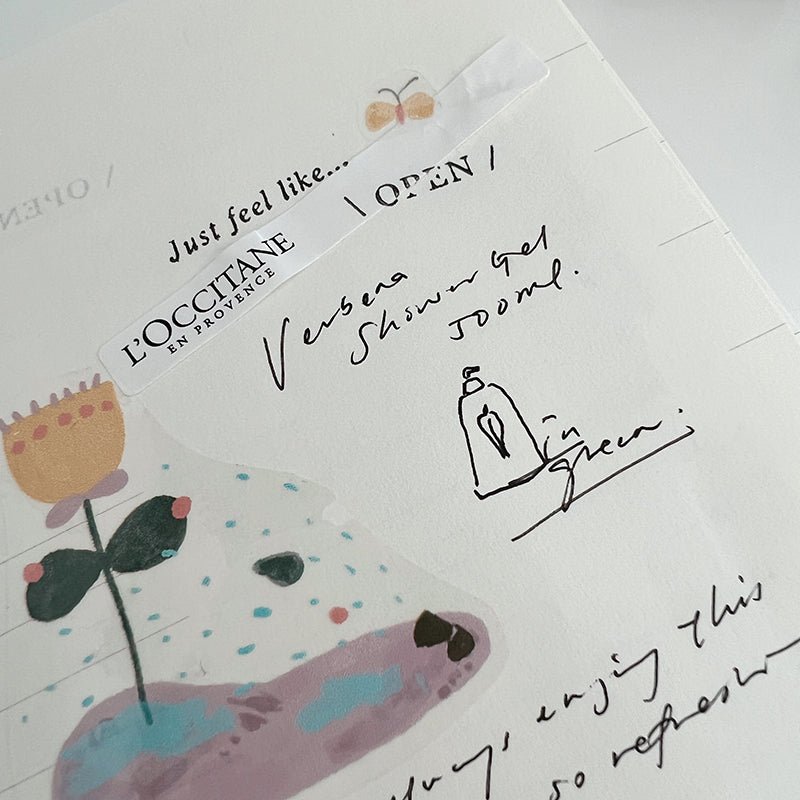 Just feel like...
\ OPEN /
L'OCCITANE
EN PROVENCE
Verbena
Shower Gel
500ml.
in
green.
always enjoy this
so refreshi